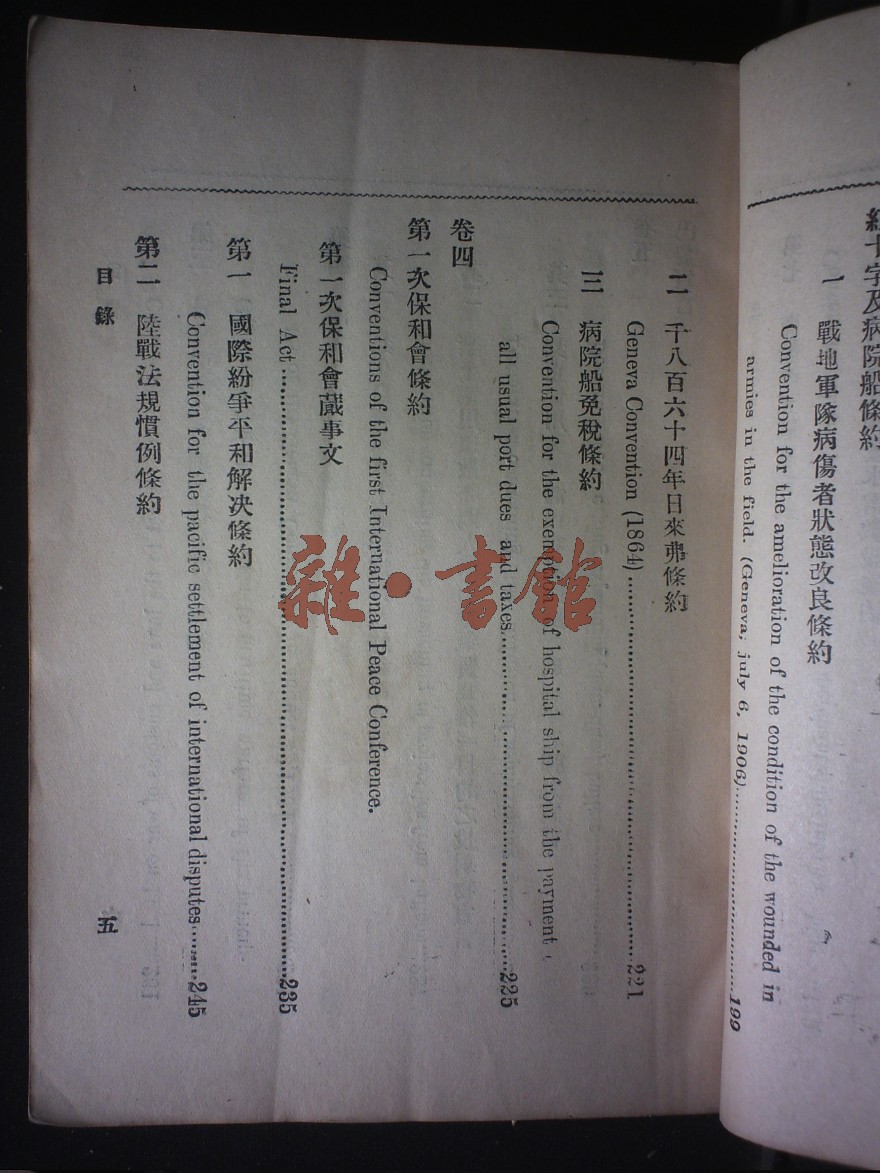 紅十字及病院船條約
一 戰地軍隊病傷者狀態改良條約
Convention for the amelioration of the condition of the wounded in
armies in the field. (Geneva, july 6, 1906)..............................199
二 千八百六十四年日來弗條約
Geneva Convention (1864)..............................221
三 病院船免稅條約
Convention for the exemption of hospital ship from the payment
all usual port dues and taxes..............................225
卷四
第一次保和會條約
Conventions of the first International Peace Conference.
第一次保和會蕆事文
Final Act..............................235
第一 國際紛爭平和解決條約
Convention for the pacific settlement of international disputes......245
第二 陸戰法規慣例條約
目錄
五
雜·書館